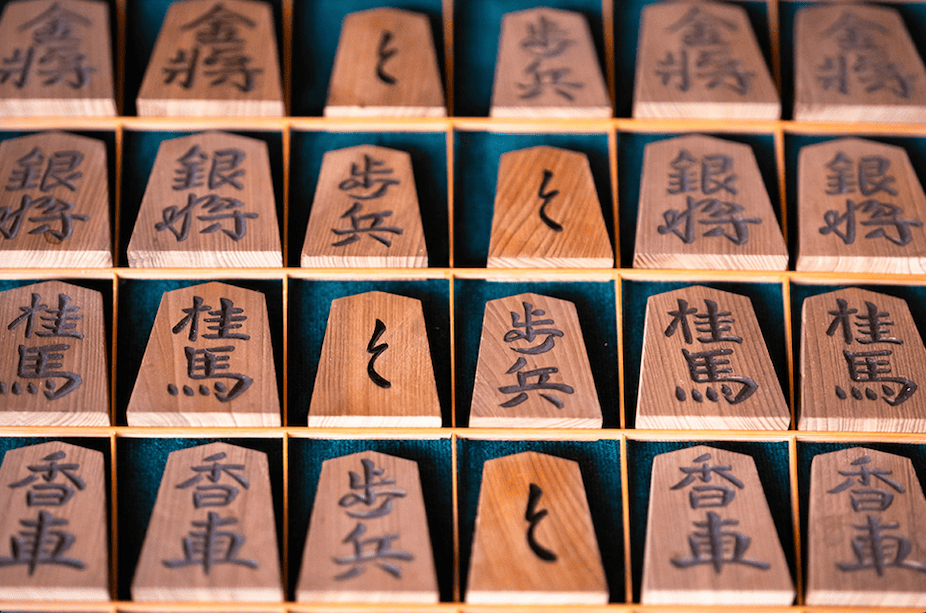 金將
金將
と
歩兵
金將
金將
銀将
銀将
歩兵
と
銀将
銀将
桂馬
桂馬
と
歩兵
桂馬
桂馬
香車
香車
歩兵
と
香車
香車